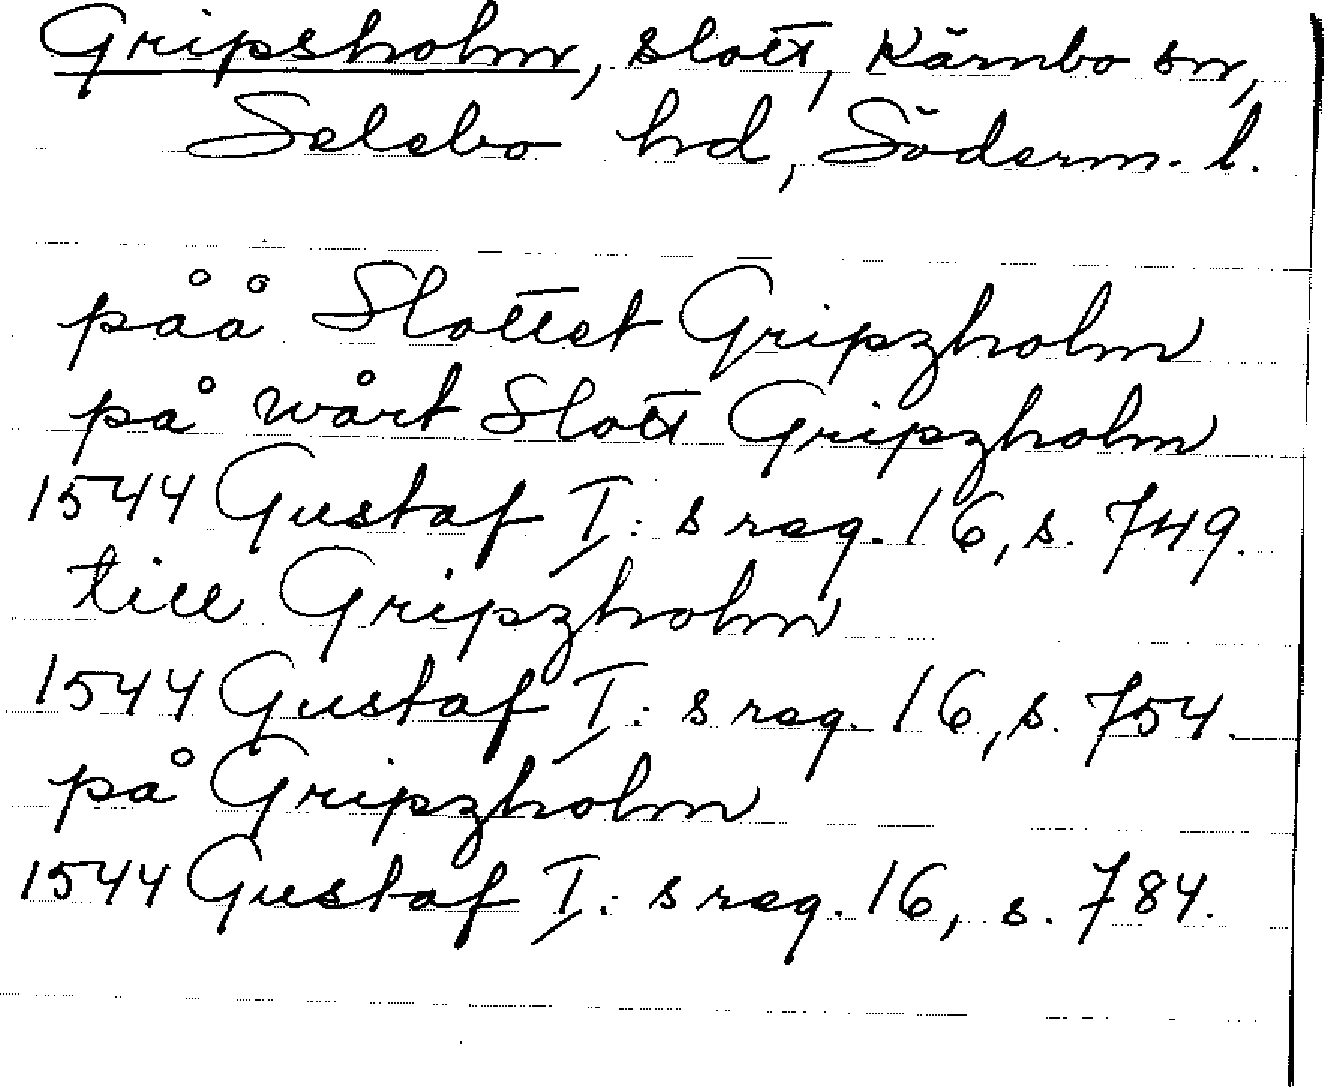 Gripsholm, slott, Kärnbo sn,
Selebo hd, Söderm. l.
påå Slottet Gripzholm
på wårt Slott Gripzholm
1544 Gustaf I: s reg. 16, s. 749.
till Gripzholm
1544 Gustaf I: s reg. 16, s. 754.
på Gripzholm
1544 Gustaf I: s reg. 16, s. 784.